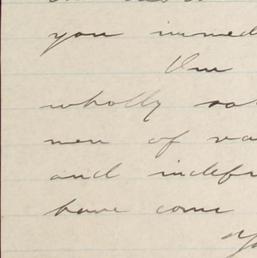 you immed
Our
wholly sa
men of va
and indef
have come
Yo